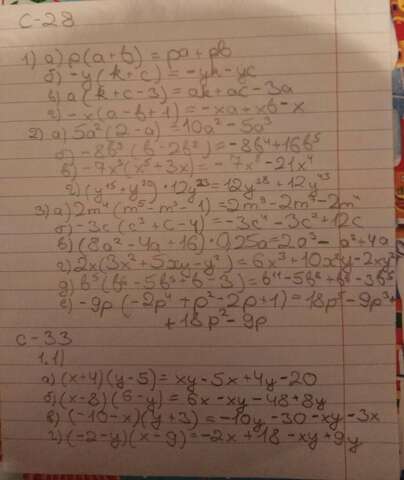 С-28
1) а) p(a+b) = pa+pb
б) -y(k+c) = -yk-yc
в) a(k+c-3) = ak+ac-3a
г) -x(a-b+1) = -xa+xb-x
2) а) 5a²(2-a) = 10a² - 5a³
б) -8b³(b-2b²) = -8b⁴+16b⁵
в) -7x³(x⁵+3x) = -7x⁸-21x⁴
г) (y¹⁵+y²⁰)·12y²³ = 12y³⁸+12y⁴³
3) а) 2m⁴(m⁵-m³-1) = 2m⁹-2m⁷-2m⁴
б) -3c(c³+c-4) = -3c⁴-3c²+12c
в) (8a²-4a+16)·0,25a = 2a³-a²+4a
г) 2x(3x²+5xy-y²) = 6x³+10x²y-2xy²
д)
е) -9p(-2p⁴+p²-2p+1) = 18p⁵-9p³+
+18p²-9p
С-33
1.1)
а) (x+4)(y-5) = xy-5x+4y-20
б) (x-8)(6-y) = 6x-xy-48+8y
в) (-10-x)(y+3) = -10y-30-xy-3x
г) (-2-y)(x-9) = -2x+18-xy+9y